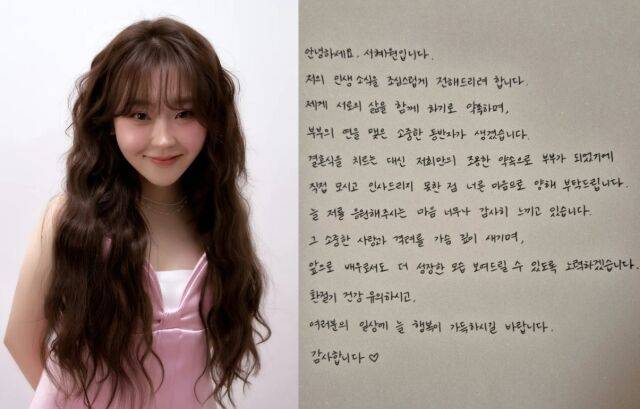 안녕하세요. 서혜원입니다.
저의 인생 소식을 조심스럽게 전해드리려 합니다.
제게 서로의 삶을 함께 하기로 약속하며,
부부의 연을 맺은 소중한 동반자가 생겼습니다.
결혼식을 치르는 대신 저희만의 조용한 약속으로 부부가 되었기에
직접 모시고 인사드리지 못한 점 너른 마음으로 양해 부탁드립니다.
늘 저를 응원해주시는 마음 너무나 감사히 느끼고 있습니다.
그 소중한 사랑과 격려를 가슴 깊이 새기며,
앞으로 배우로서도 더 성장한 모습 보여드릴 수 있도록 노력하겠습니다.
환절기 건강 유의하시고,
여러분의 일상에 늘 행복이 가득하시길 바랍니다.
감사합니다 ♡